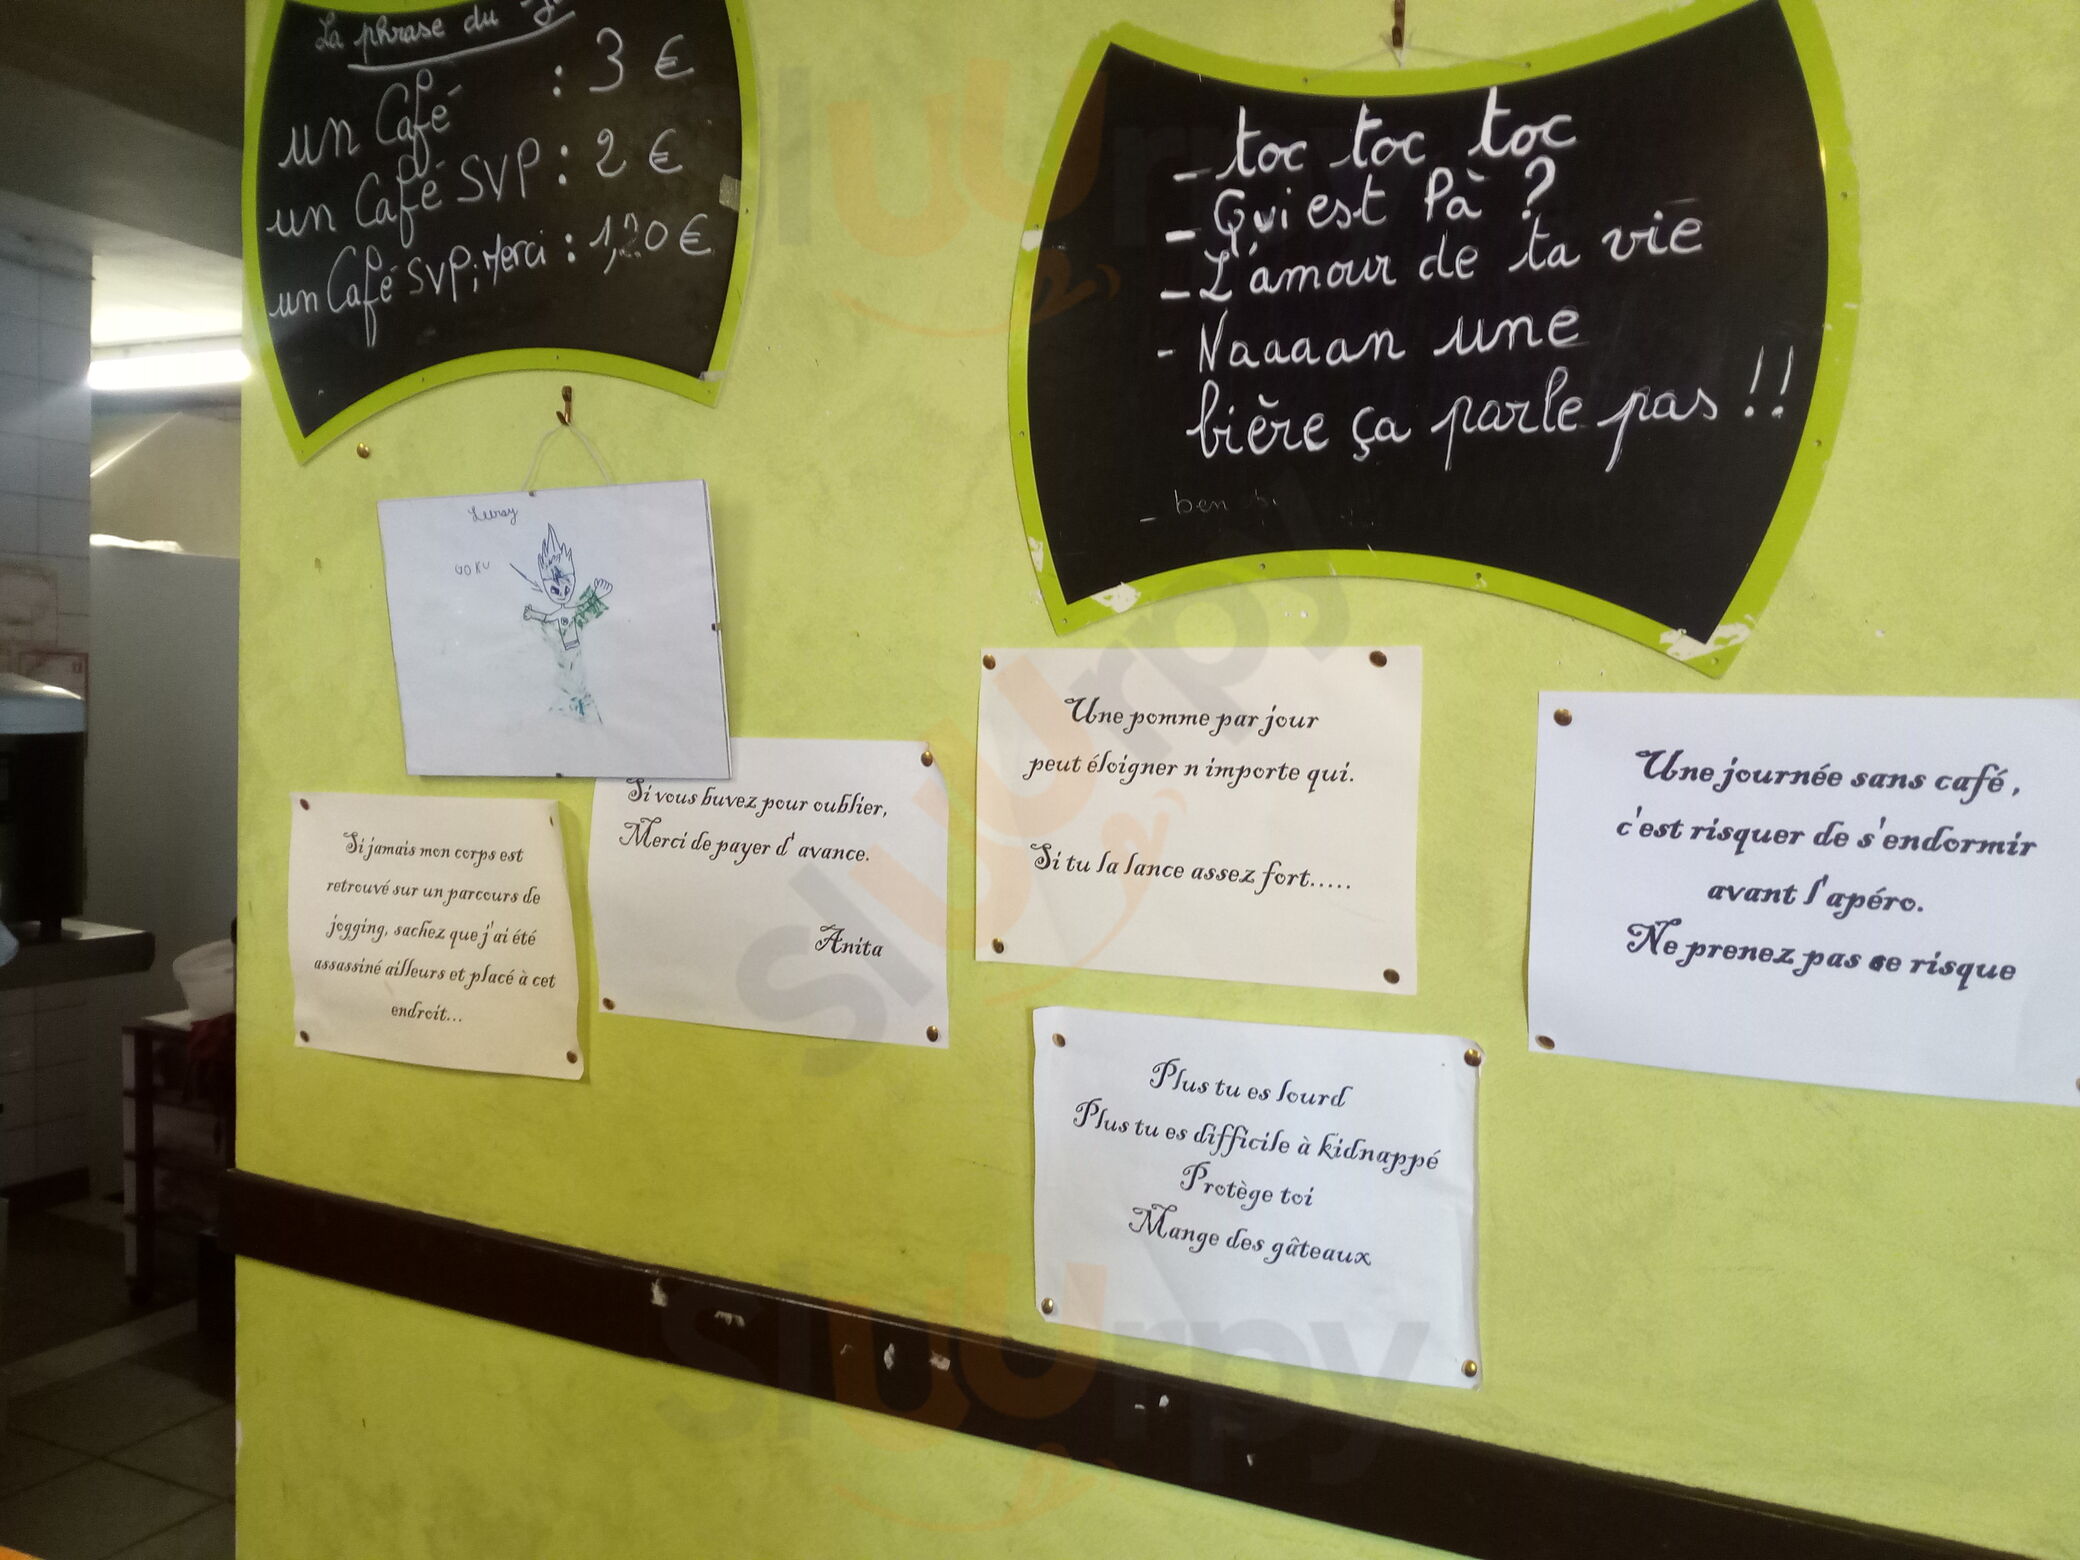 La phrase du
un Café : 3 €
un Café SVP : 2 €
un Café SVP; Merci : 1,20 €
- toc toc toc
- Qui est là ?
- L'amour de ta vie
- Naaaan une
bière ça parle pas !!
- ben
GOKU
Si jamais mon corps est
retrouvé sur un parcours de
jogging, sachez que j'ai été
assassiné ailleurs et placé à cet
endroit...
Si vous buvez pour oublier,
Merci de payer d'avance.
Anita
Une pomme par jour
peut éloigner n importe qui.
Si tu la lance assez fort.....
Une journée sans café,
c'est risquer de s'endormir
avant l'apéro.
Ne prenez pas ce risque
Plus tu es lourd
Plus tu es difficile à kidnappé
Protège toi
Mange des gâteaux
sluurpy
sluurpy
sluurpy